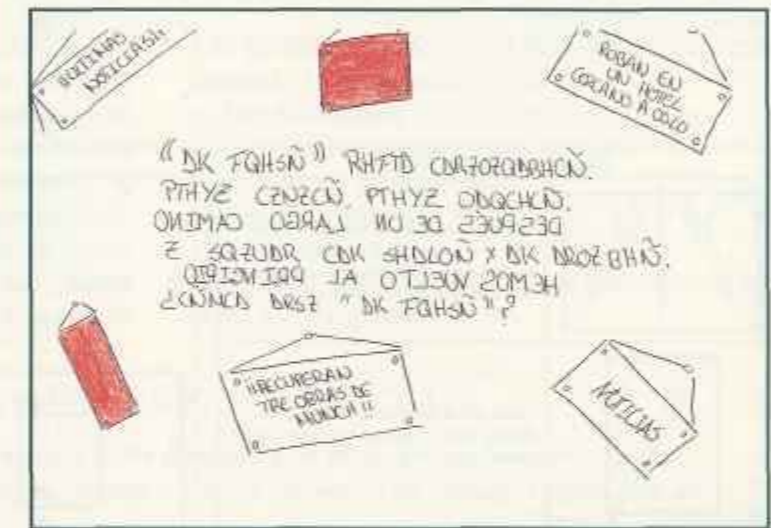 ¡¡ULTIMAS
NOTICIAS!!
ROBAN EN
UN HOTEL
"DK FQHSÑ" RHFTD CDRZOZQDBHCÑ.
PTHYZ CZNZCÑ, PTHYZ ODQCHCÑ.
DESPUES DE UN LARGO CAMINO
Z SQZUDR CDK SHDLOÑ X DK DROZBHÑ.
HEMOS VUELTO AL PRINCIPIO
¿CÑNCD DRSZ "DK FQHSÑ"?
¡¡RECUPERAN
TRE OBRAS DE
MUNCH!!
NOTICIAS